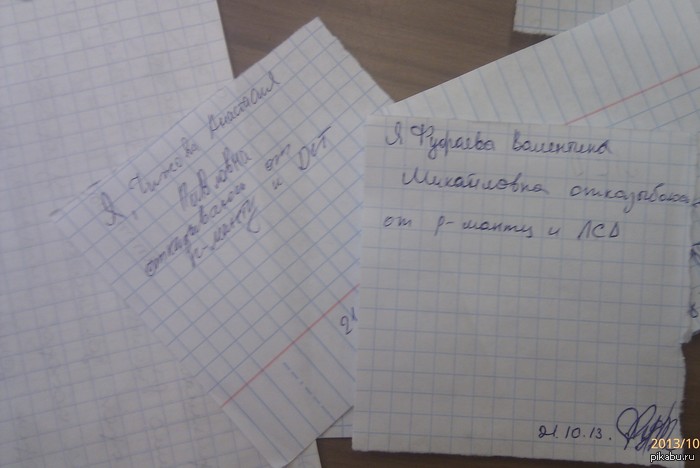 Я, Чижова Анастасия
Павловна
отказываюсь от
р-манту и DST
Я Фуфаева Валентина
Михайловна отказываюсь
от р-манту и ЛСД
21.10.13.
2013/10
pikabu.ru